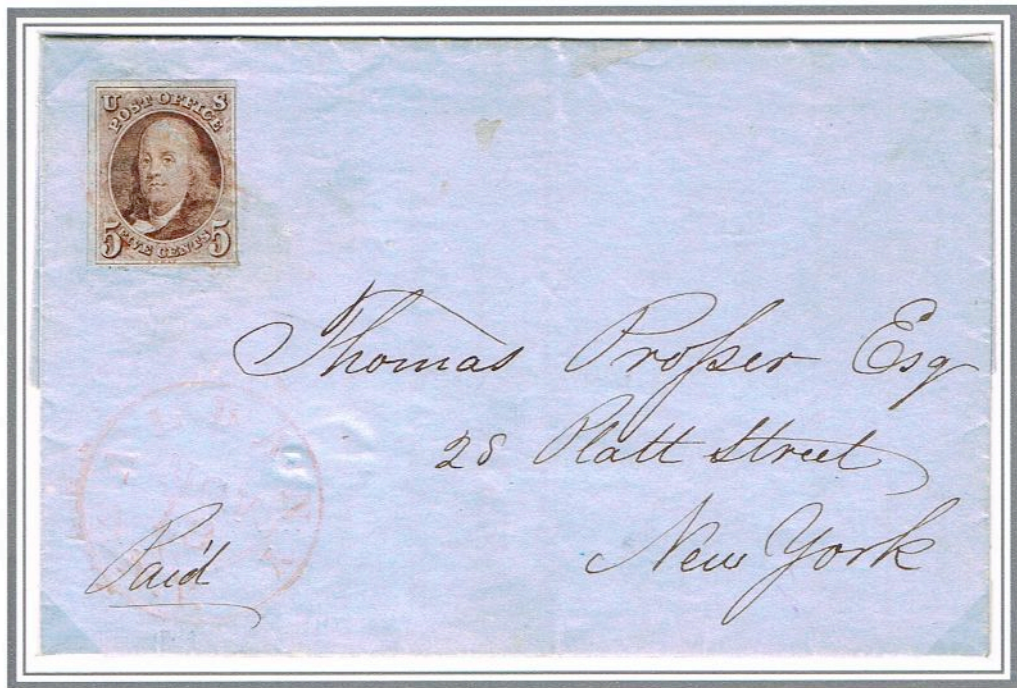 U S
POST OFFICE
5 FIVE CENTS 5
Thomas Prosser Esq
28 Platt Street
New York
Paid